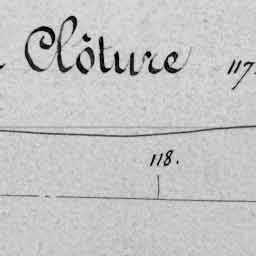 Clôture 117
118.